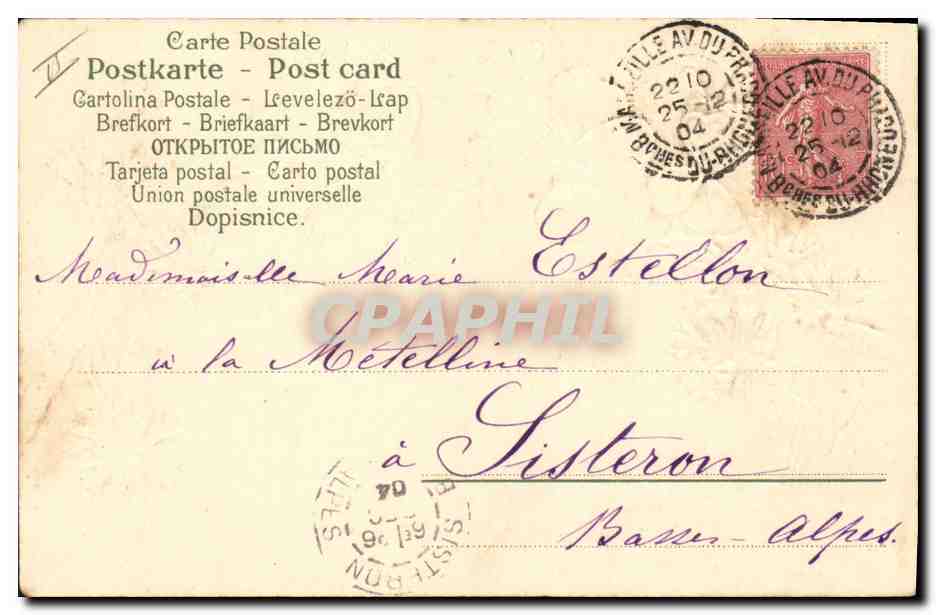 Carte Postale
Postkarte - Post card
Cartolina Postale - Levelező-Lap
Brefkort - Briefkaart - Brevkort
ОТКРЫТОЕ ПИСЬМО
Tarjeta postal - Carto postal
Union postale universelle
Dopisnice.
AV. DU PHARO
22 10
25 - 12
04
BCHES DU-RHONE
EILLE AV. DU PHARO
22 10
25 - 12
04
BCHES DU-RHONE
Mademoiselle Marie Estellon
CPAPHIL
à la Mételline
à Sisteron
Basses-Alpes.
SISTERON
04
ALPES